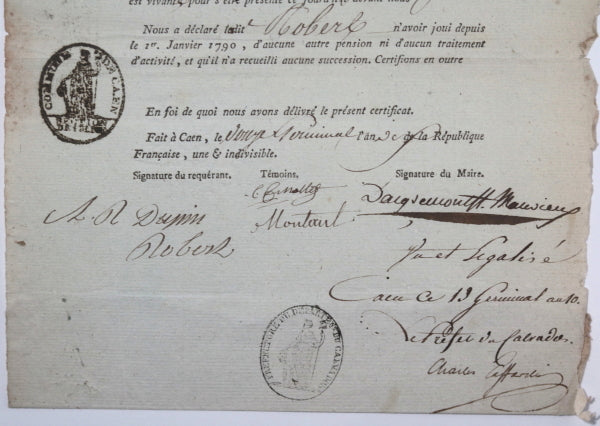 est vivant, pour s'être présenté ce jour
Nous a déclaré ledit Robert n'avoir joui depuis
le 1er. Janvier 1790, d'aucune autre pension ni d'aucun traitement
d'activité, et qu'il n'a recueilli aucune succession. Certifions en outre
COMMUNE DE CAEN
En foi de quoi nous avons délivré le présent certificat.
Fait à Caen, le Germinal l'an de la République
Française, une & indivisible.
Signature du requérant. Témoins. Signature du Maire.
A. R Dupin
Robert
Montaut
Vu et Légalisé
Caen ce 13 Germinal an 10.
Le Préfet du Calvados.
Charles
PREFECTURE DU DEPARTEM. DU CALVADOS